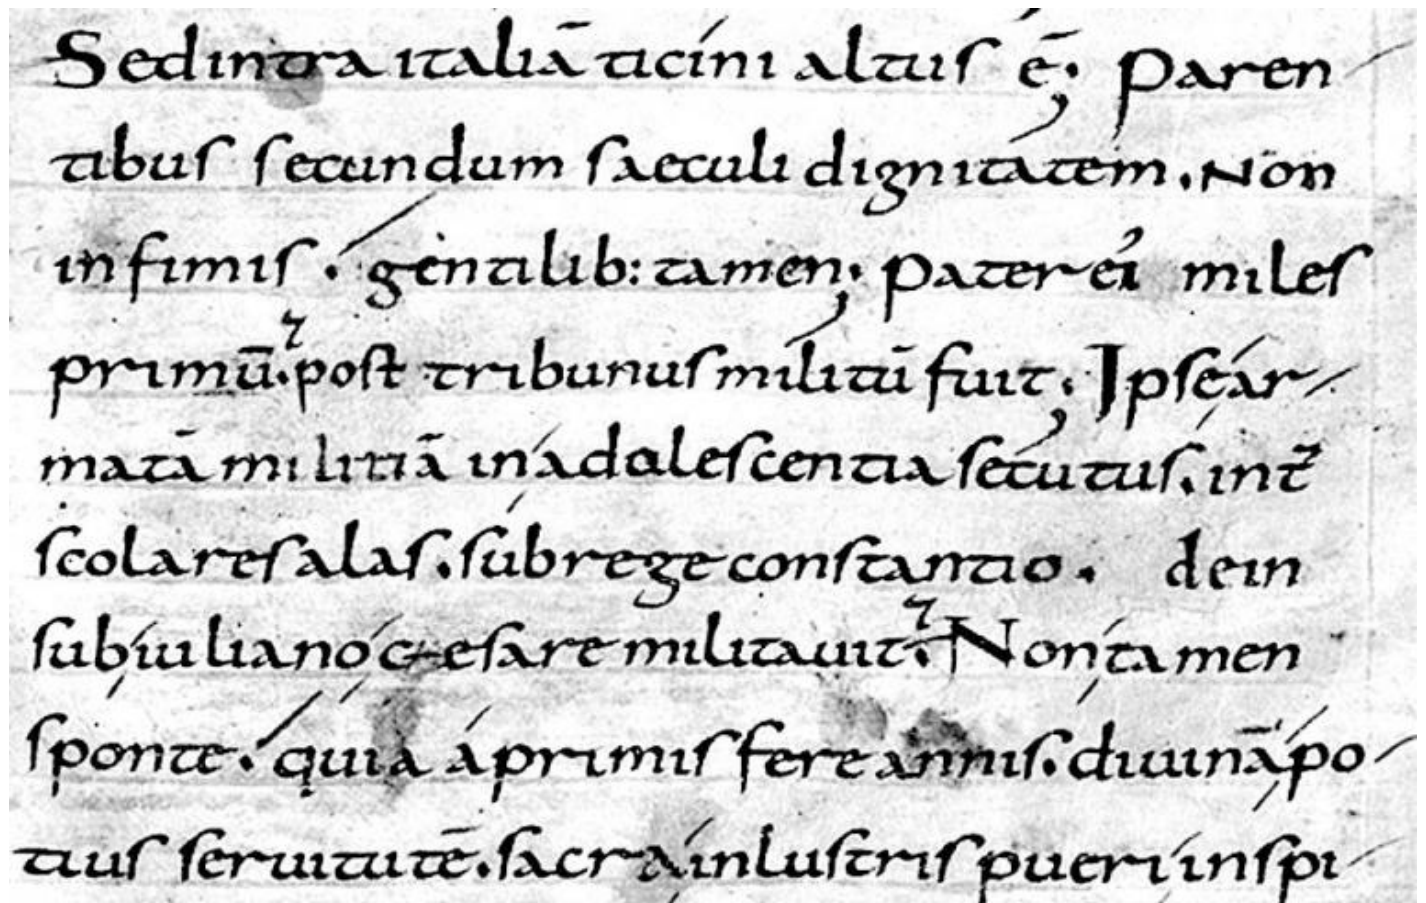 Sed intra italiā ticini altus ē; Paren
tibus secundum saeculi dignitatem. Non
infimis. gentilib: tamen; Pater ei' miles
primū. post tribunus militū fuit; Ipse ar
matā militiā in adolescentia secutus. int̄
scolares alas. sub rege constantio. dein
sub iuliano cęsare militauit. Non tamen
sponte. quia a primis fere annis. diuinā po
tius seruitutē. sacra inlustris pueri inspi